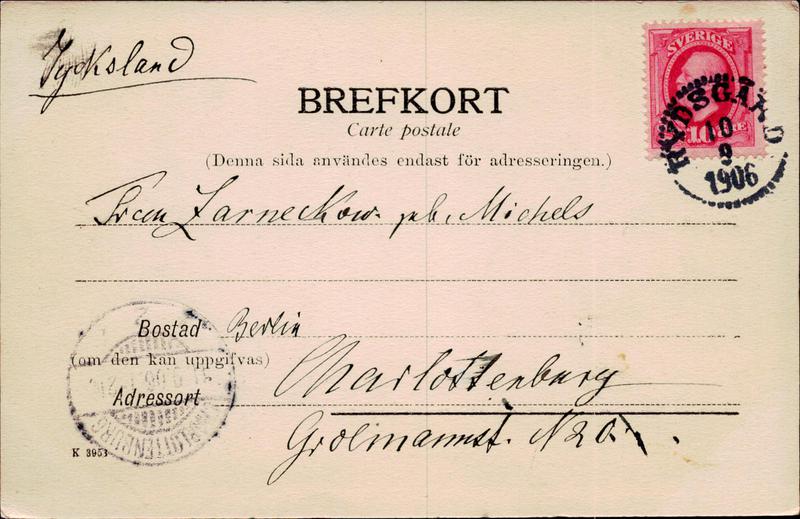 Tycksland
SVERIGE
10
RYDSGÅRD
10
9
1906
BREFKORT
Carte postale
(Denna sida användes endast för adresseringen.)
Frau Zarnekow. geb. Michels
Bostad Berlin
(om den kan uppgifvas)
Charlottenburg
Adressort
Grolmannst. N 20.
CHARLOTTENBURG
K 3953